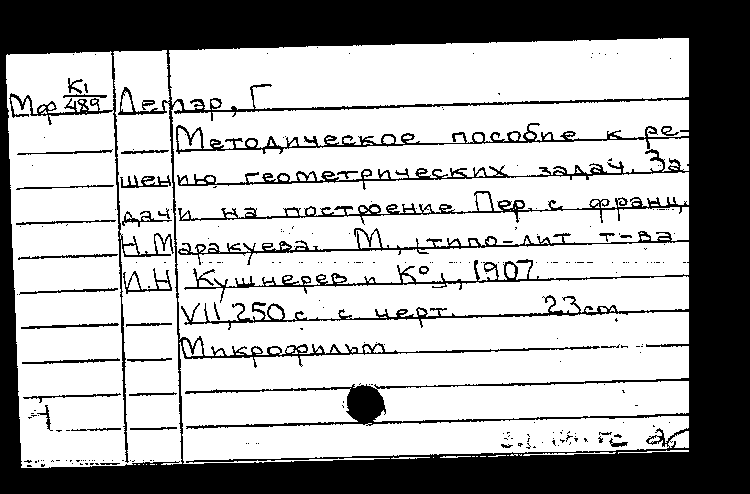 Мф К1/489 Лемар, Г
Методическое пособие к ре-
шению геометрических задач. За-
дачи на построение Пер. с франц.
Н. Маракуева. М., [типо-лит т-ва
И.Н Кушнерев и К°], 1907.
VII, 250 с. с черт. 23cm.
Микрофильм.
Ч